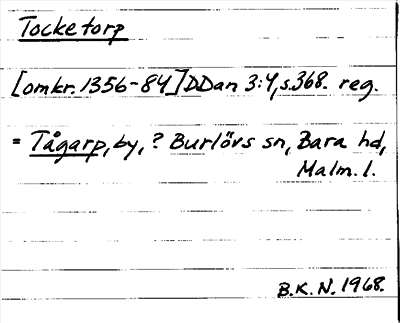 Tocketorp
[omkr. 1356-84] DDan 3:4, s. 368. reg.
= Tågarp, by, ? Burlövs sn, Bara hd,
Malm. l.
B.K.N. 1968.